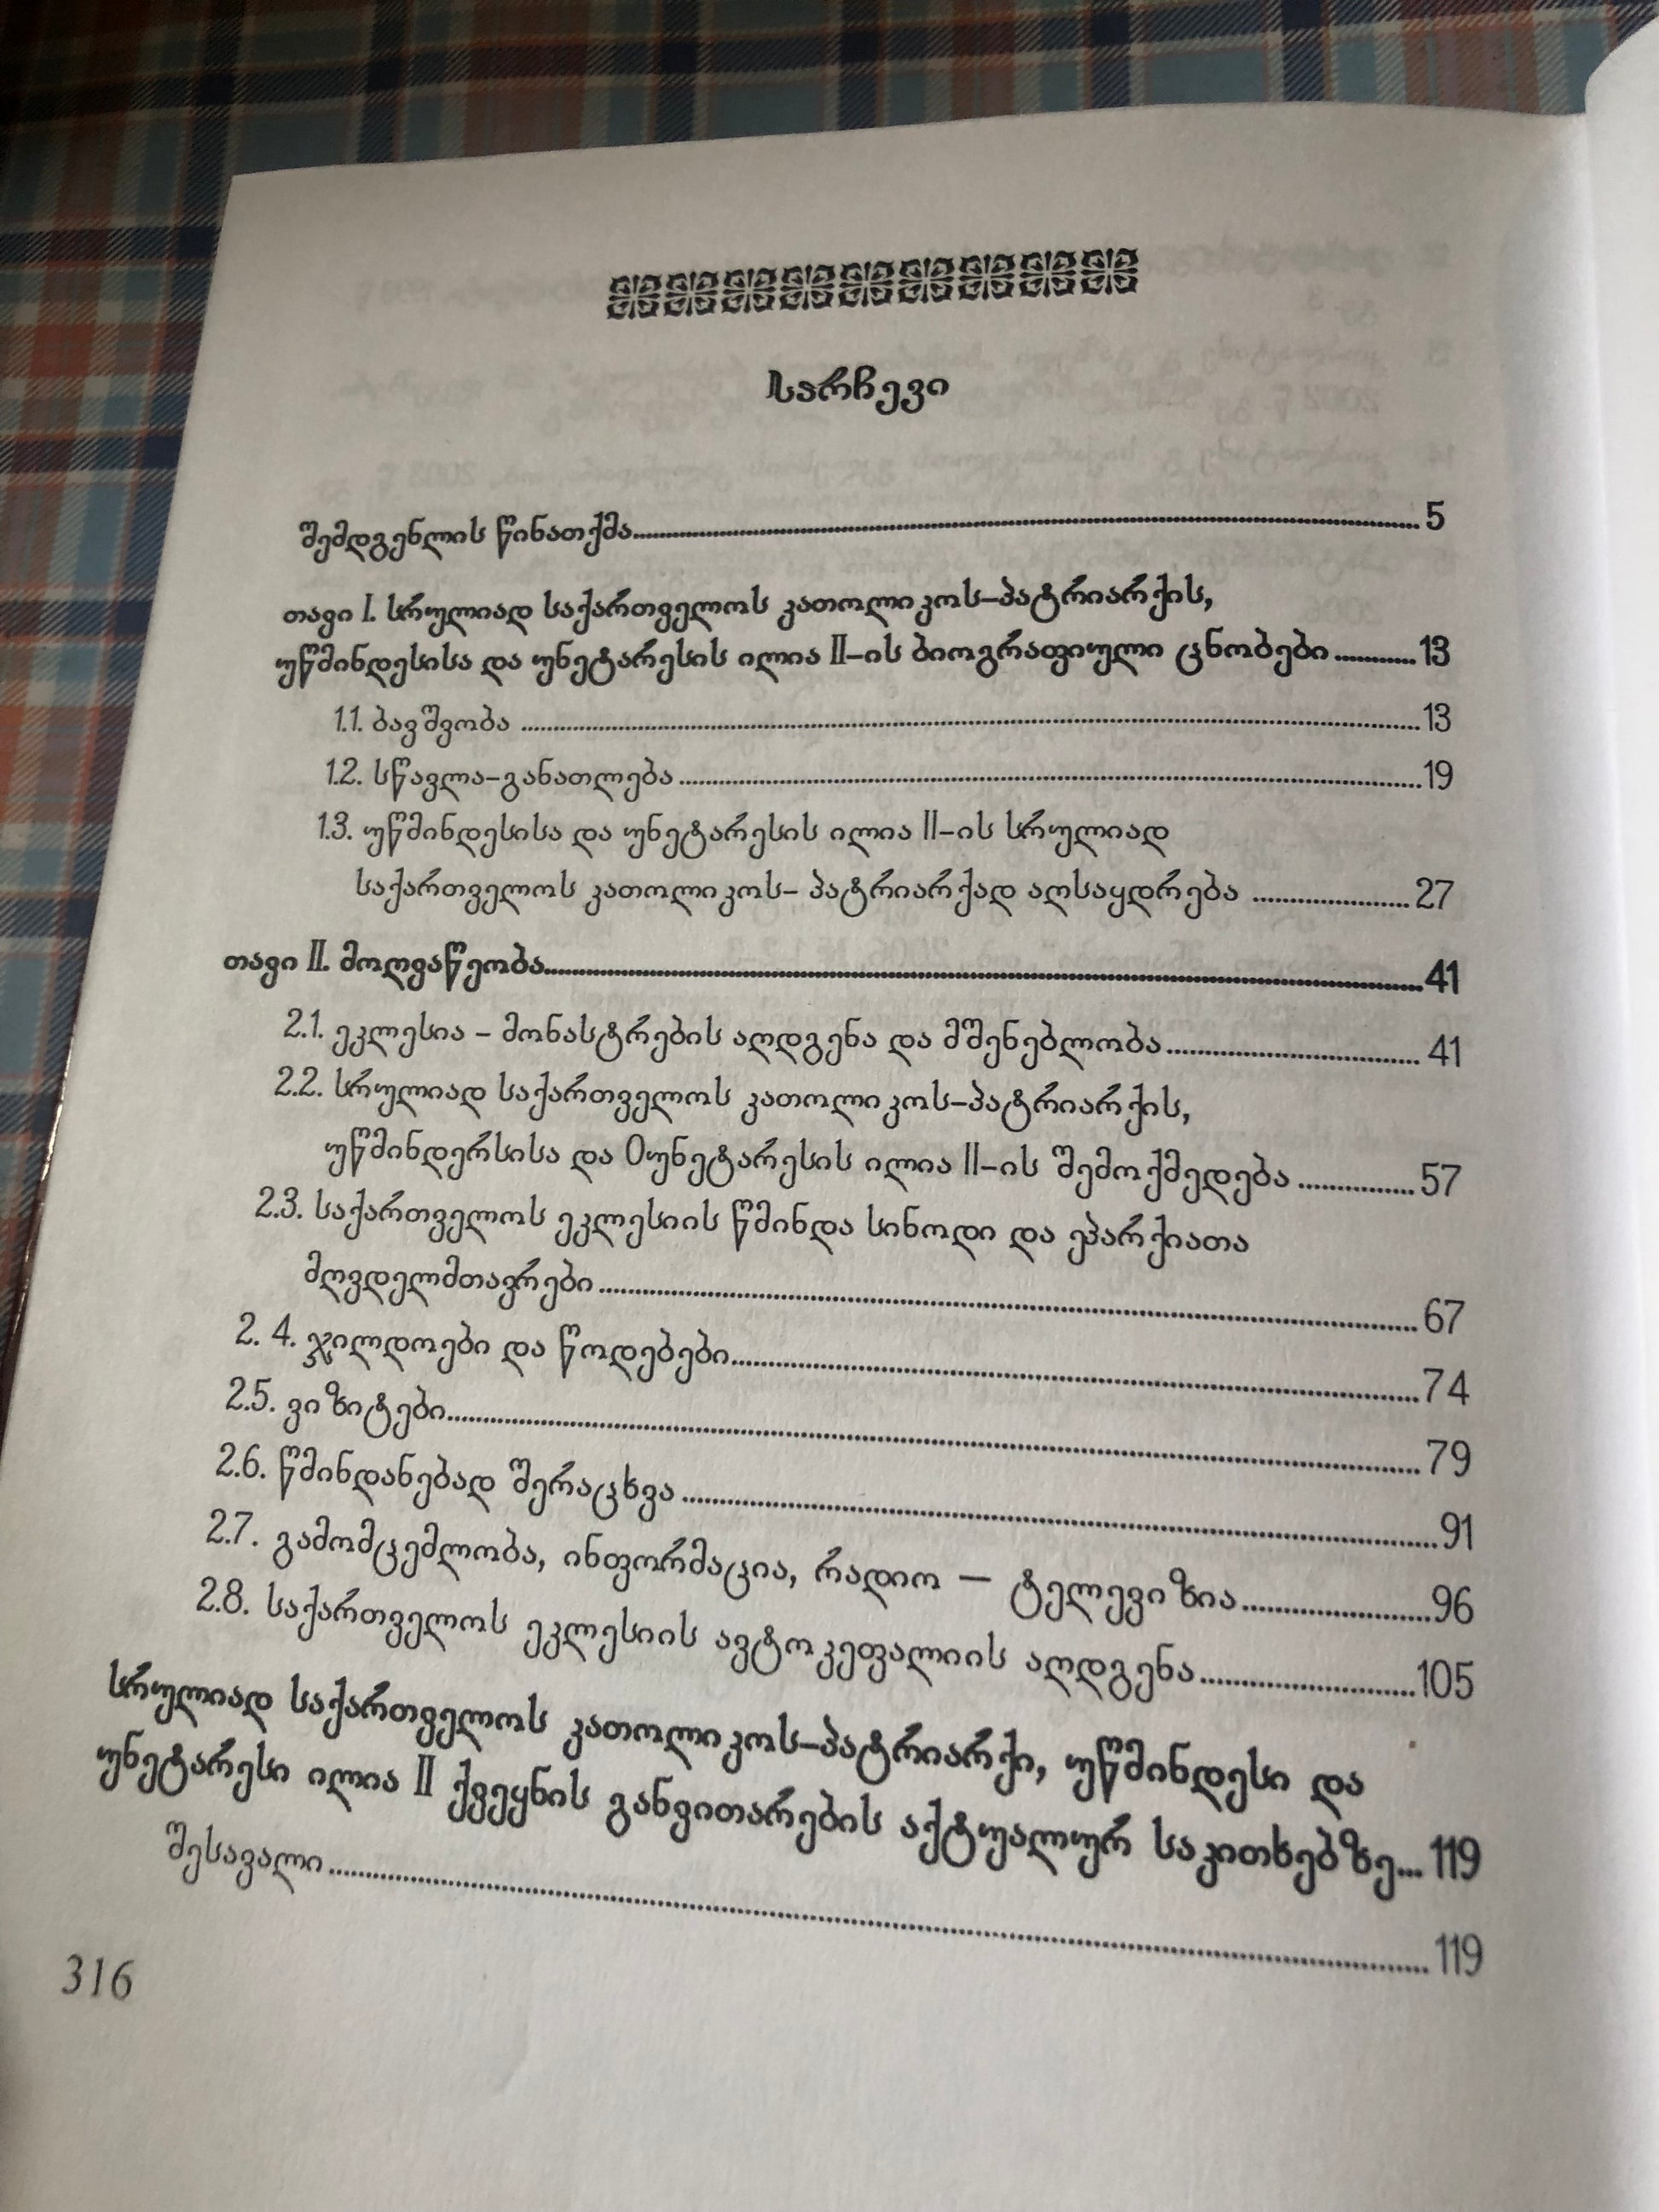 სარჩევი
შემდგენლის წინათქმა 5
თავი I. სრულიად საქართველოს კათოლიკოს-პატრიარქის,
უწმინდესისა და უნეტარესის ილია II-ის ბიოგრაფიული ცნობები 13
1.1. ბავშვობა 13
1.2. სწავლა-განათლება 19
1.3. უწმინდესისა და უნეტარესის ილია II-ის სრულიად
საქართველოს კათოლიკოს- პატრიარქად აღსაყდრება 27
თავი II. მოღვაწეობა 41
2.1. ეკლესია - მონასტრების აღდგენა და მშენებლობა 41
2.2. სრულიად საქართველოს კათოლიკოს-პატრიარქის,
უწმინდერსისა და 0უნეტარესის ილია II-ის შემოქმედება 57
2.3. საქართველოს ეკლესიის წმინდა სინოდი და ეპარქიათა
მღვდელმთავრები 67
2. 4. ჯილდოები და წოდებები 74
2.5. ვიზიტები 79
2.6. წმინდანებად შერაცხვა 91
2.7. გამომცემლობა, ინფორმაცია, რადიო — ტელევიზია 96
2.8. საქართველოს ეკლესიის ავტოკეფალიის აღდგენა 105
სრულიად საქართველოს კათოლიკოს-პატრიარქი, უწმინდესი და
უნეტარესი ილია II ქვეყნის განვითარების აქტუალურ საკითხებზე... 119
შესავალი 119
316